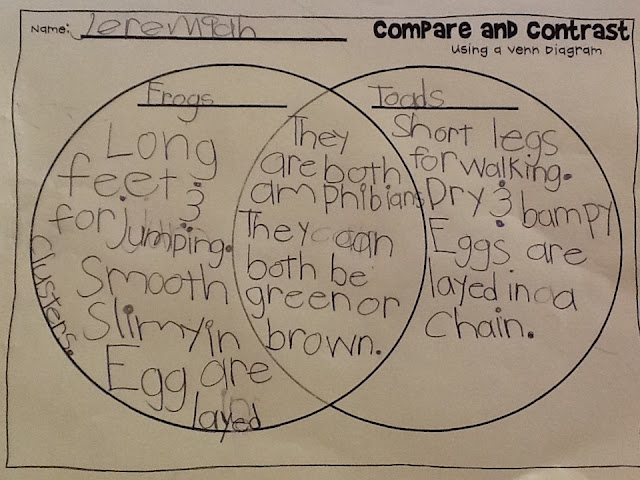 Name: Jeremiah
Compare and Contrast
using a Venn Diagram
Frogs
Long
feet &
for jumping.
Smooth
Slimy in
Egg are
layed
Clusters.
They
are both
amphibians
They can
both be
green or
brown.
Toads
Short legs
for walking.
Dry & bampy
Eggs are
layed in a
Chain.